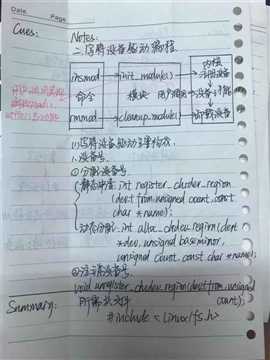 Date.
Page.
Cues:
Notes:
二、字符设备驱动编程
insmod
命令
rmmod
init_module()
模块
用户调用
cleanup_module()
内核
注册设备
设备功能
卸载设备
(1)字符设备驱动主要构成
1.设备号
②分配设备号
静态申请: int register_chrdev_region
(dev_t from, unsigned count, const
char *name);
动态分配: int alloc_chrdev_region(dev_t
*dev, unsigned baseminor,
unsigned count, const char *name);
③注销设备号
void unregister_chrdev_region(dev_t from, unsigned
count);
所需头文件
#include <linux/fs.h>
Summary: